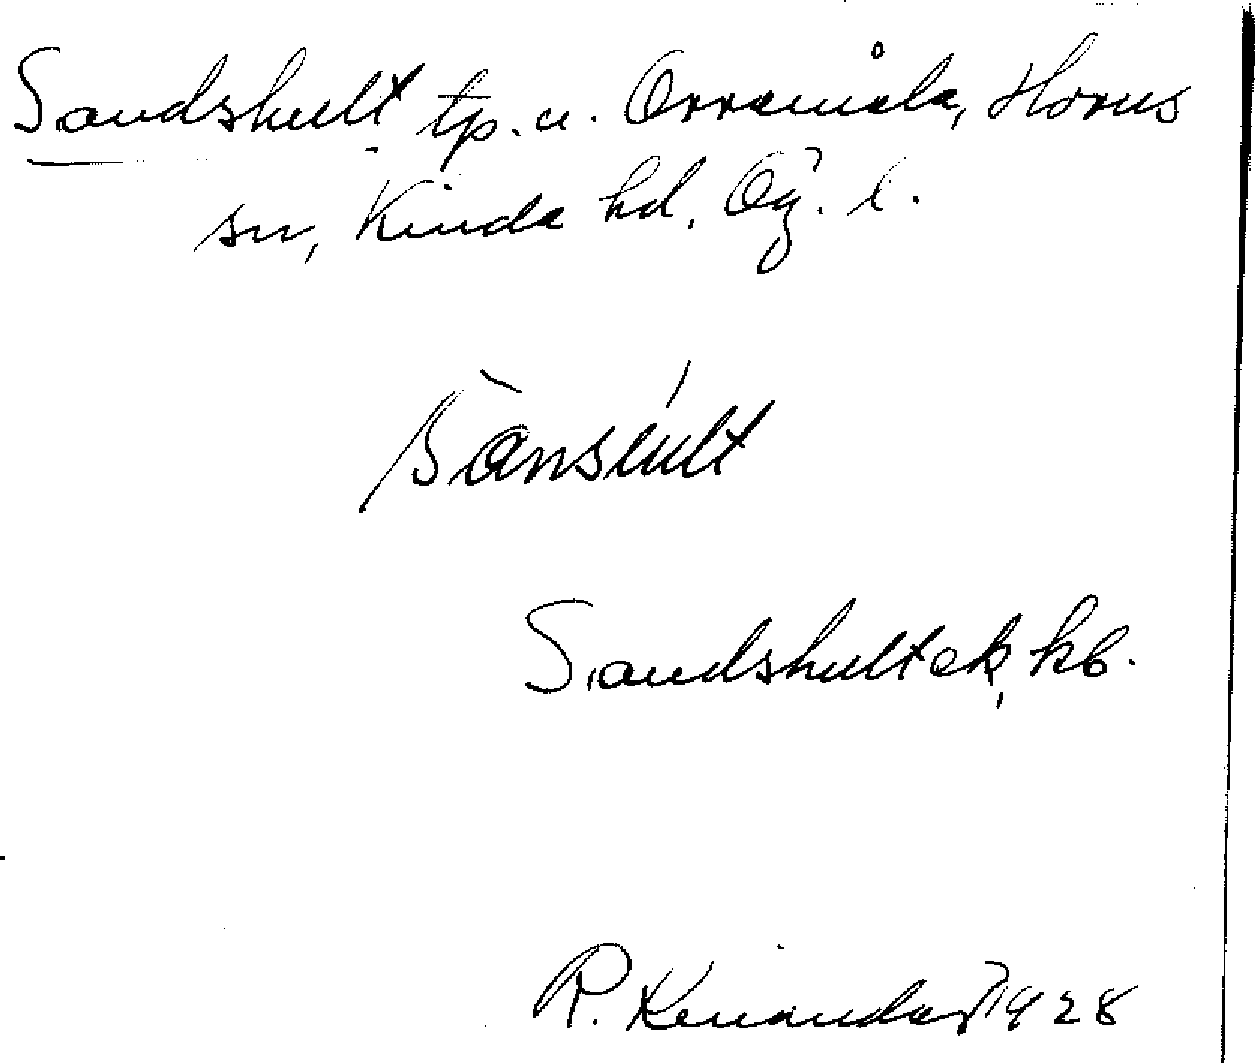 Sandshult tp. u. Orramåla, Horns
sn, Kinda hd. Ög. l.
sànsúlt
Sandshult ek, kb.
R. Kenander 1928